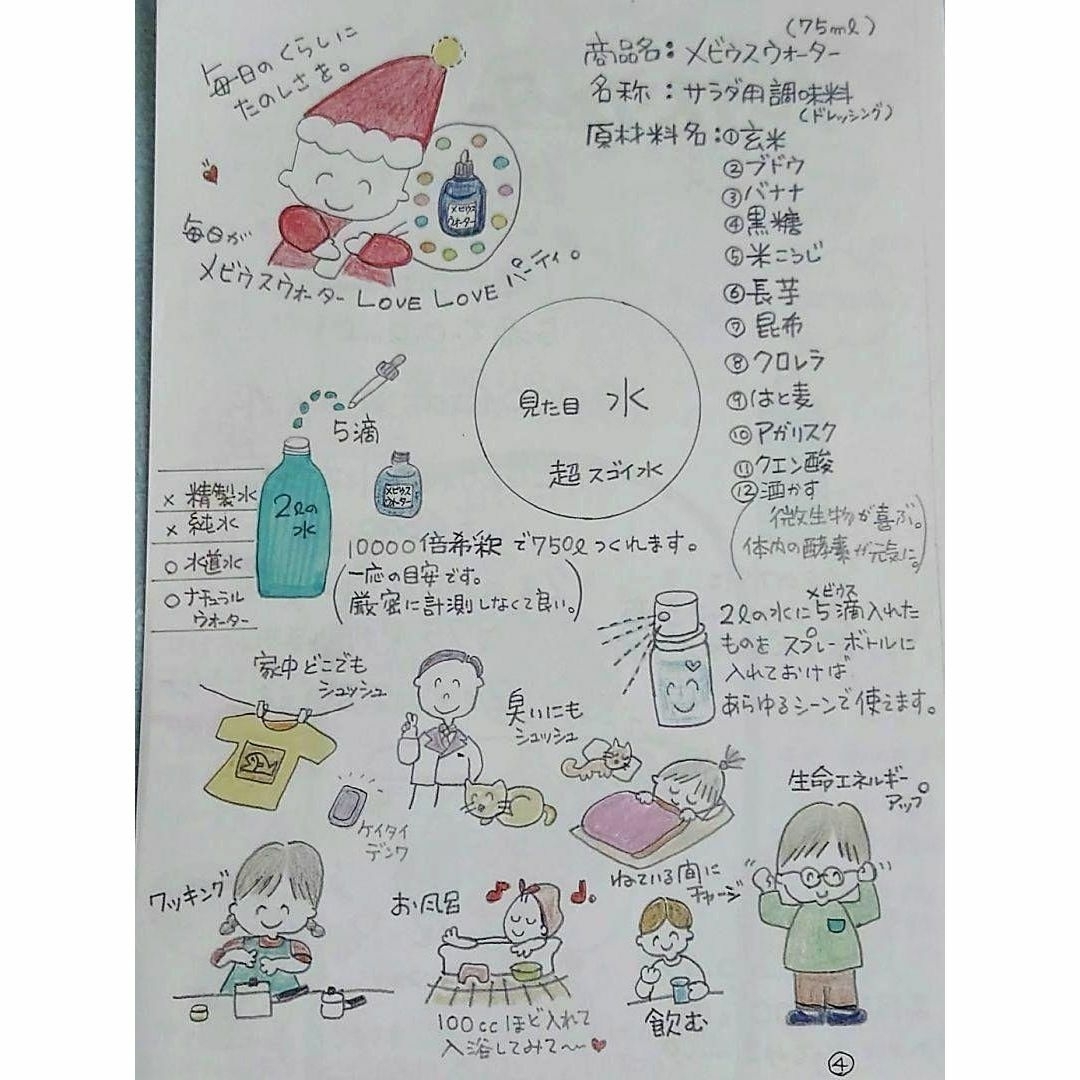 毎日のくらしに
たのしさを。
(75ml)
商品名:メビウスウォーター
名称:サラダ用調味料
(ドレッシング)
原材料名:①玄米
②ブドウ
③バナナ
④黒糖
⑤米こうじ
⑥長芋
⑦昆布
⑧クロレラ
⑨はと麦
⑩アガリスク
⑪クエン酸
⑫酒かす
(微生物が喜ぶ。
体内の酵素が元気に。)
メビウス
ウォーター
毎日が
メビウスウォーター LOVE LOVE パーティ。
見た目 水
超スゴイ水
5滴
2lの
水
メビウス
ウォーター
× 精製水
× 純水
○ 水道水
○ ナチュラル
ウォーター
10000倍希釈で750lつくれます。
(一応の目安です。
厳密に計測しなくて良い。)
メビウス
2lの水に5滴入れた
ものをスプレーボトルに
入れておけば
あらゆるシーンで使えます。
家中どこでも
シュッシュ
臭いにも
シュッシュ
ケイタイ
デンワ
ねている間に
チャージ
生命エネルギー
アップ。
ワッキング
お風呂
100ccほど入れて
入浴してみて〜♥
飲む
④